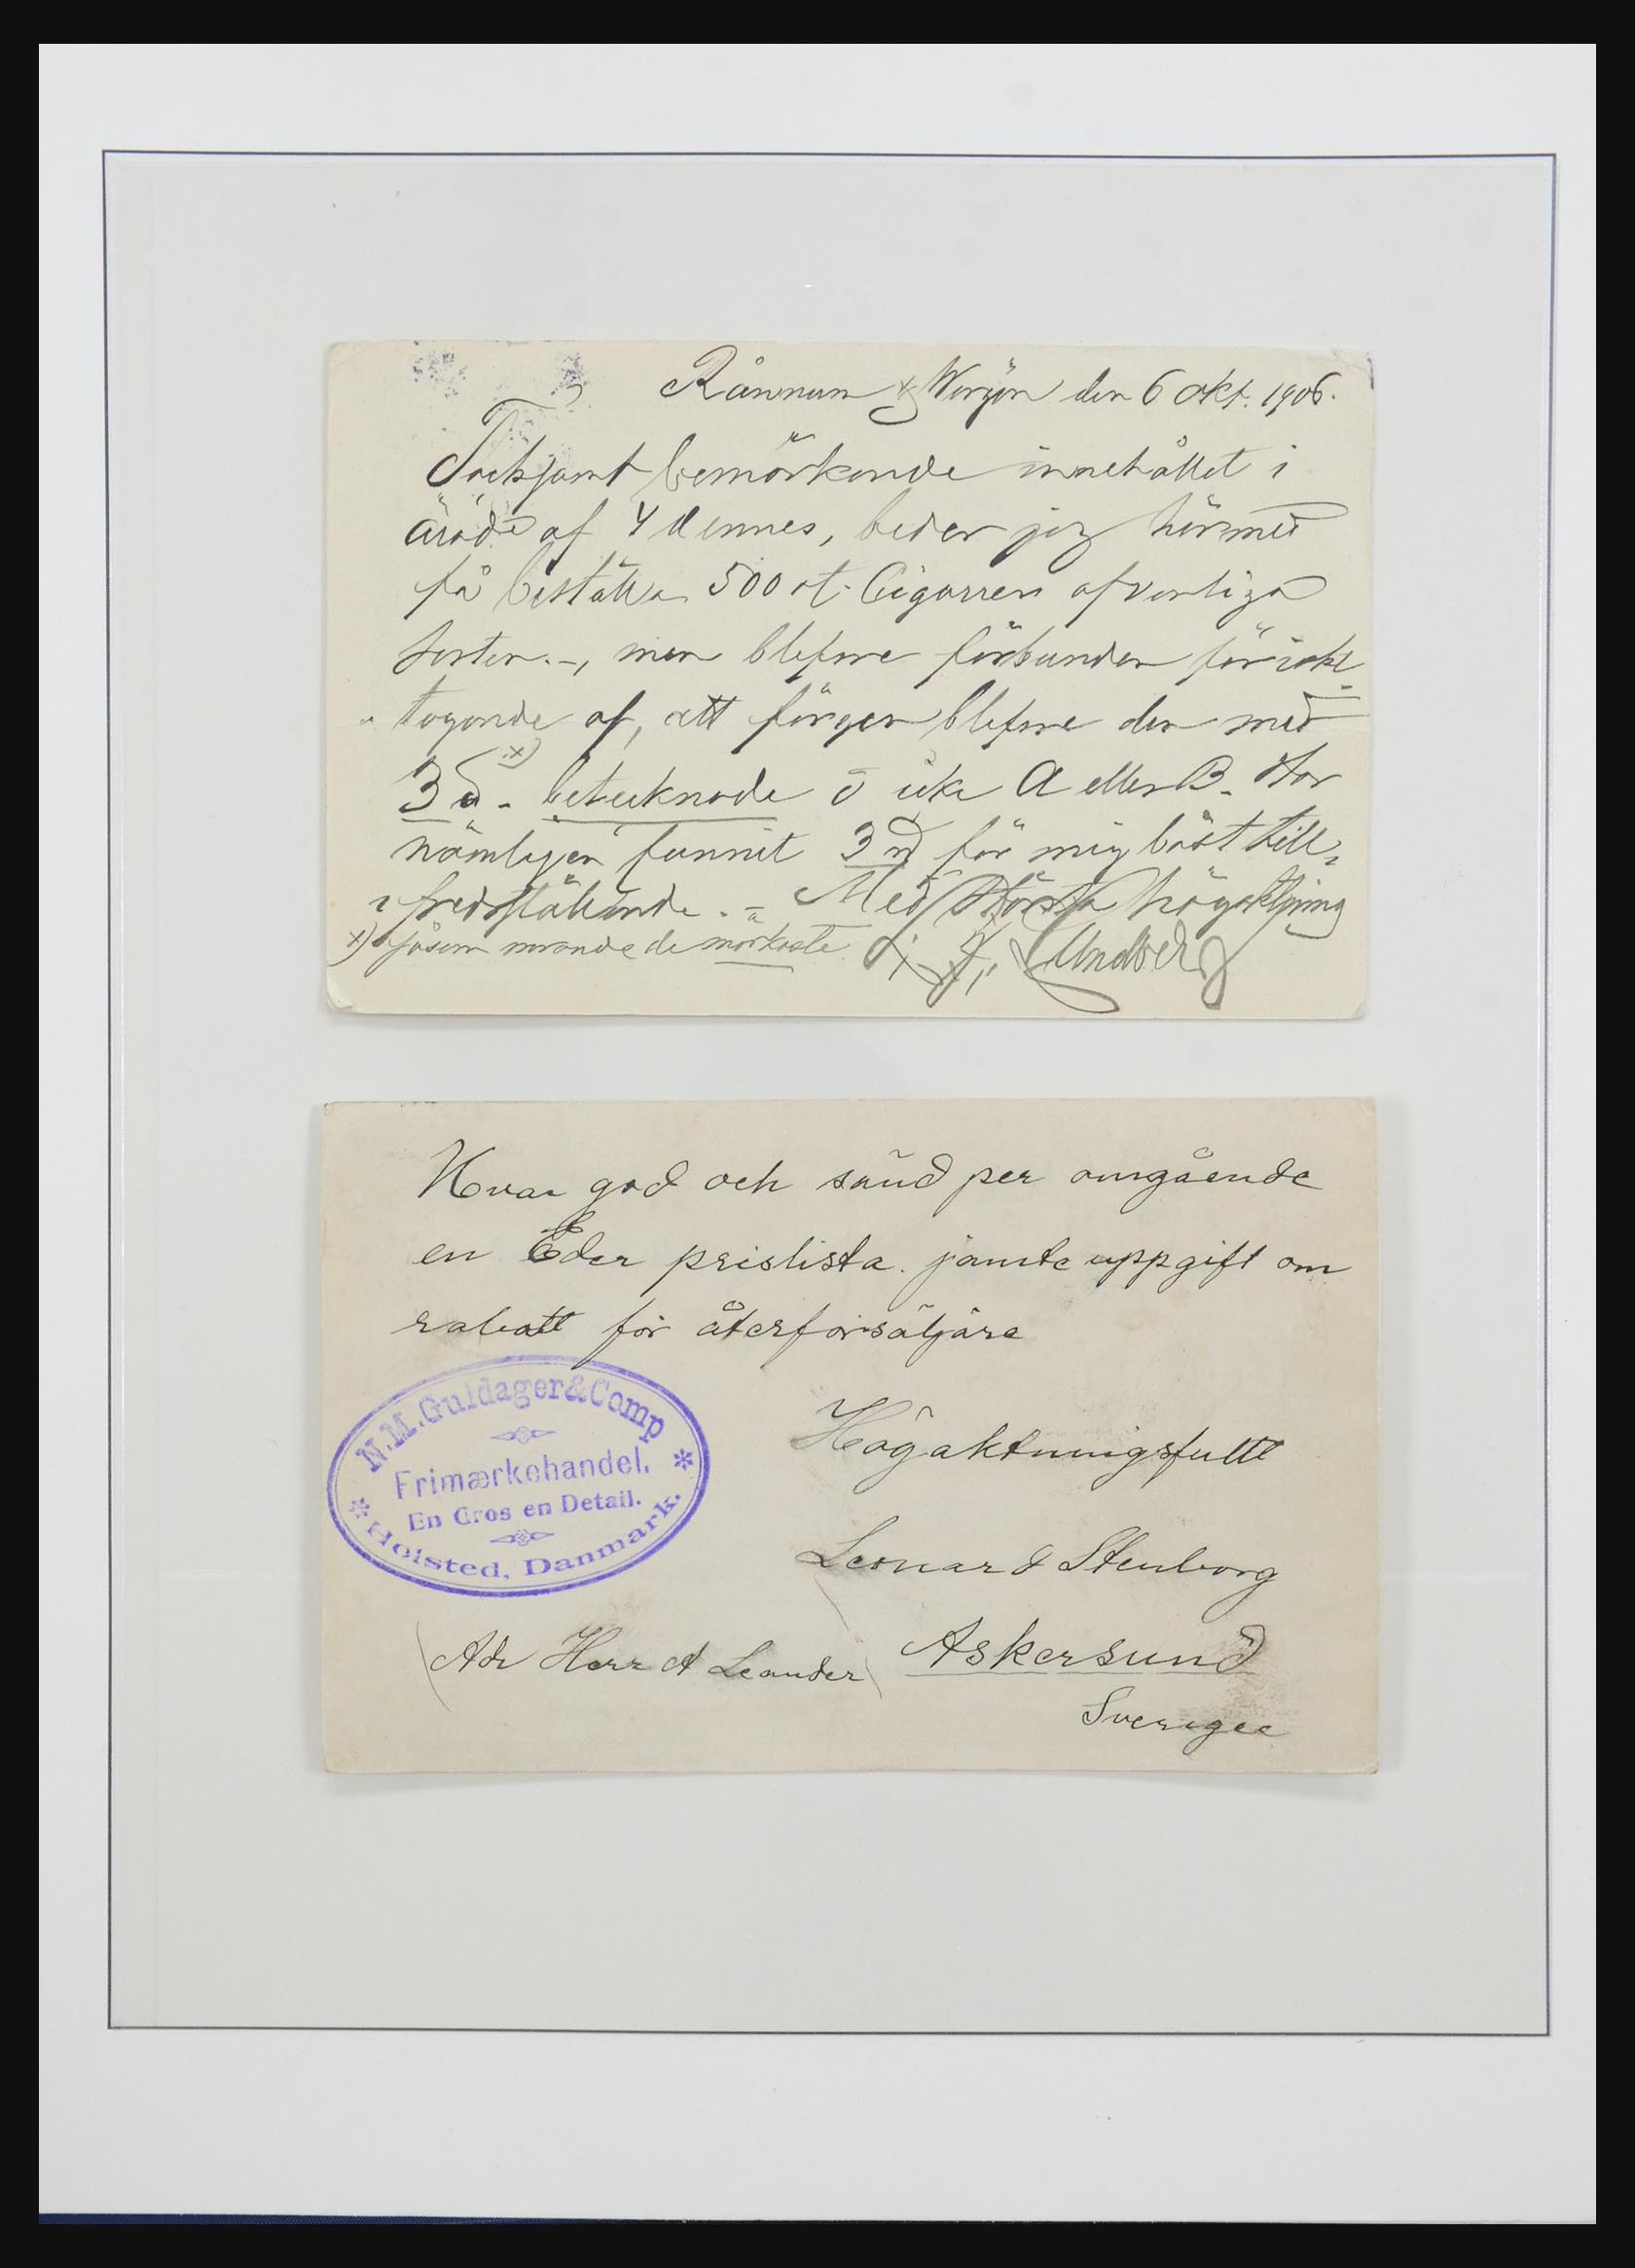 Rånnum & Wargön den 6 okt. 1906.
Tacksamt bemärkande innehållet i
ärade af 4 dennes, beder jag härmed
få beställa 500 st. Cigarrer af vanliga
sorten.-, men blefve förbunden för iakt-
tagande af, att färgen blefve den med
3 d - x) betecknade o icke A eller B. Har
nämligen funnit 3 d för mig bäst till-
fredsställande. - Med största högaktning
x) såsom varande de mörkaste Lundberg
Hvar god och sänd per omgående
en Eder prislista. jämte uppgift om
rabatt för återförsäljare
N.M.Guldager&Comp
Frimærkehandel.
En Gros en Detail.
Holsted, Danmark.
Högaktningsfullt
Leonard Stenborg
(Adr Herr A Leander) Askersund
Sverige